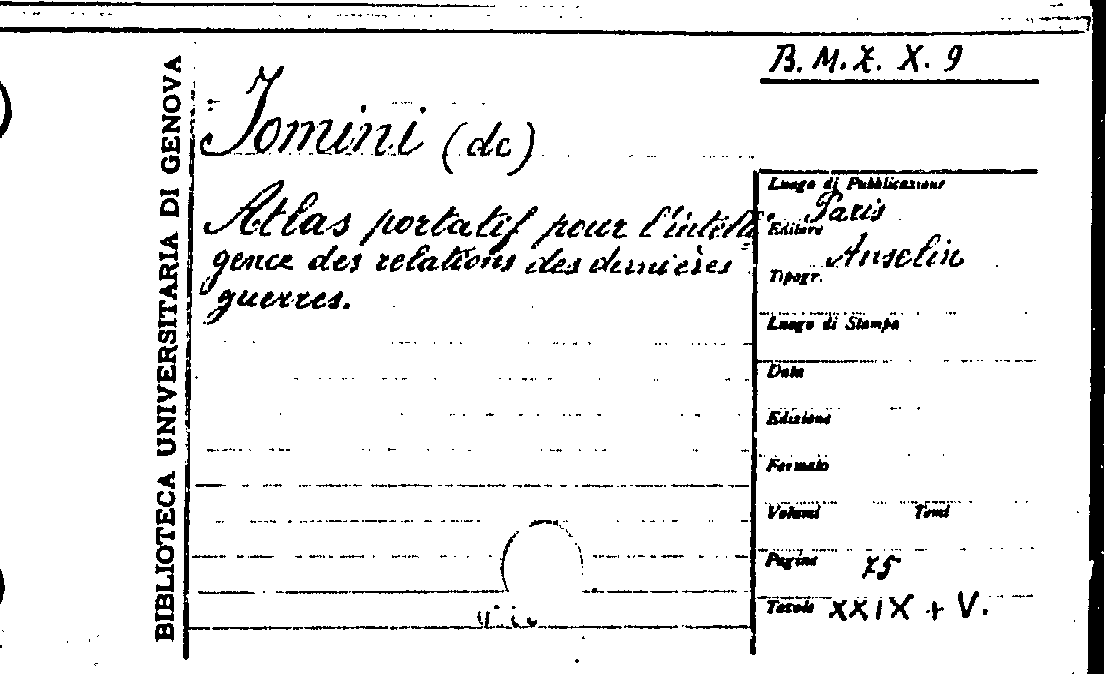 B.M.Z. X. 9
BIBLIOTECA UNIVERSITARIA DI GENOVA
Jomini (de)
Atlas portatif pour l'intelli-
gence des relations des dernières
guerres.
Luogo di Pubblicazione
Paris
Editore
Anselin
Tipogr.
Luogo di Stampa
Data
Edizione
Formato
Volumi Tomi
Pagine 75
Tavole XXIX + V.